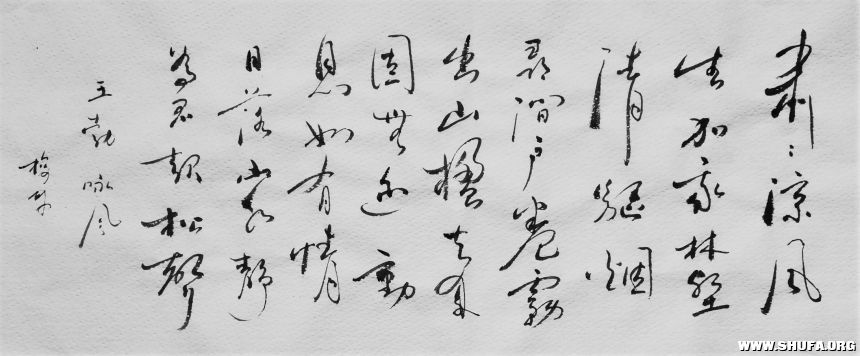 肅〻涼風
生加我林壑
清驅烟
尋澗戶卷霧
出山楹去來
固無迹動
息如有情
日落山水靜
為君起松聲
王勃咏風
WWW.SHUFA.ORG